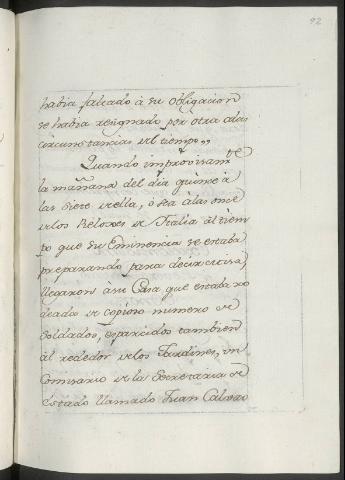 92
havia faltado à su obligacion
se habia resignado por otra alas
circunstancias del tiempo,,
Quando improvisam.te
la mañana del dia quince à
las siete de ella, ò sea àlas once
delos Reloxes de Italia àl tiem
po que su Eminencia se estaba
preparando para decir Misa,
llegaron àsu Casa que estaba ro
deada de copioso numero de
Soldados, esparcidos tambien
àl rededor delos Jardines, un
Comisario de la Secretaria de
Estado llamado Juan